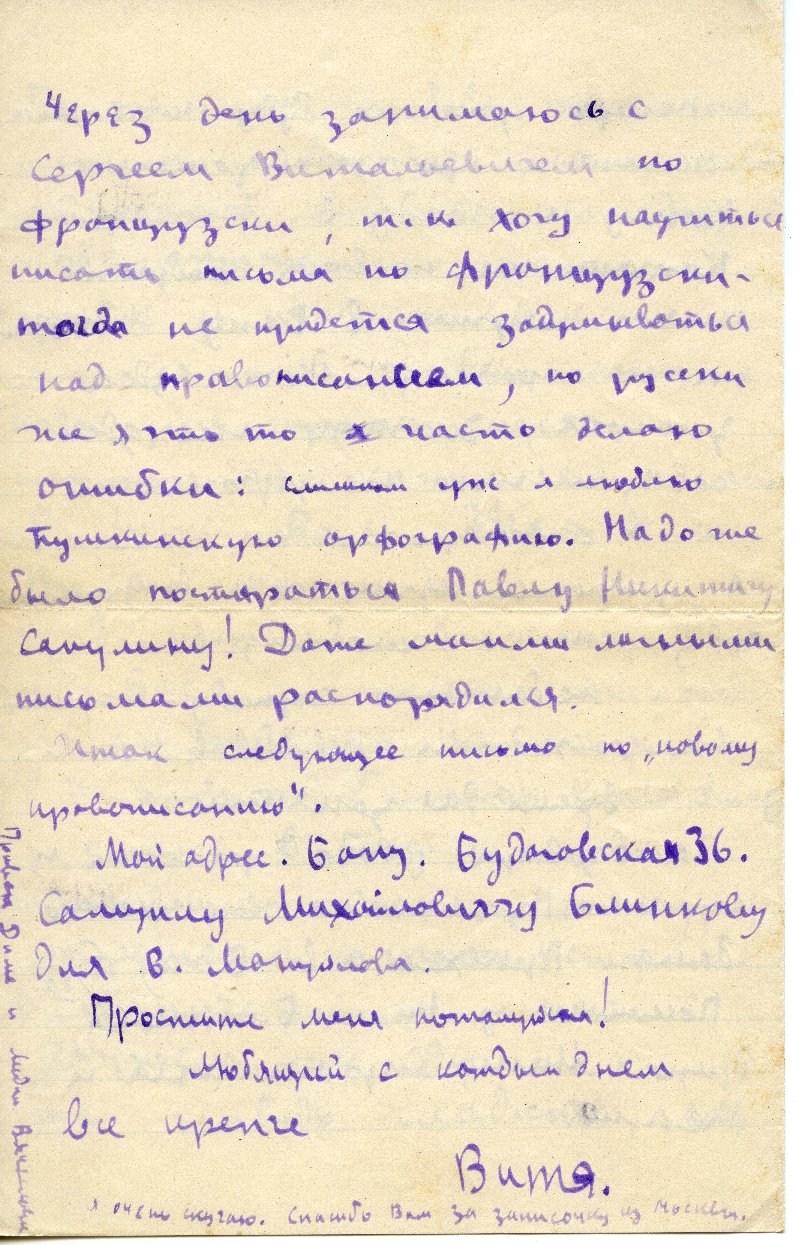 Через день занимаюсь с
Сергеем Витальевичем по
французски, т.к. хочу научиться
писать письма по французски -
тогда не придется задумываться
над правописанием, по русски
же я что то часто делаю
ошибки: слишком уж я люблю
Пушкинскую орфографию. Надо же
было постараться Павлу Никитичу
Сакулину! Даже моими личными
письмами распорядился.
Итак следующее письмо по „новому
правописанию".
Мой адрес. Баку. Будаговская 36.
Михайловичу Блинкову
для В. Мануйлова.
Простите меня пожалуйста!
Любящий с каждым днем
все крепче
Витя.
Я очень скучаю. Спасибо Вам за записочку из Москвы.
Привет Диме и Лидии Вячеславовне